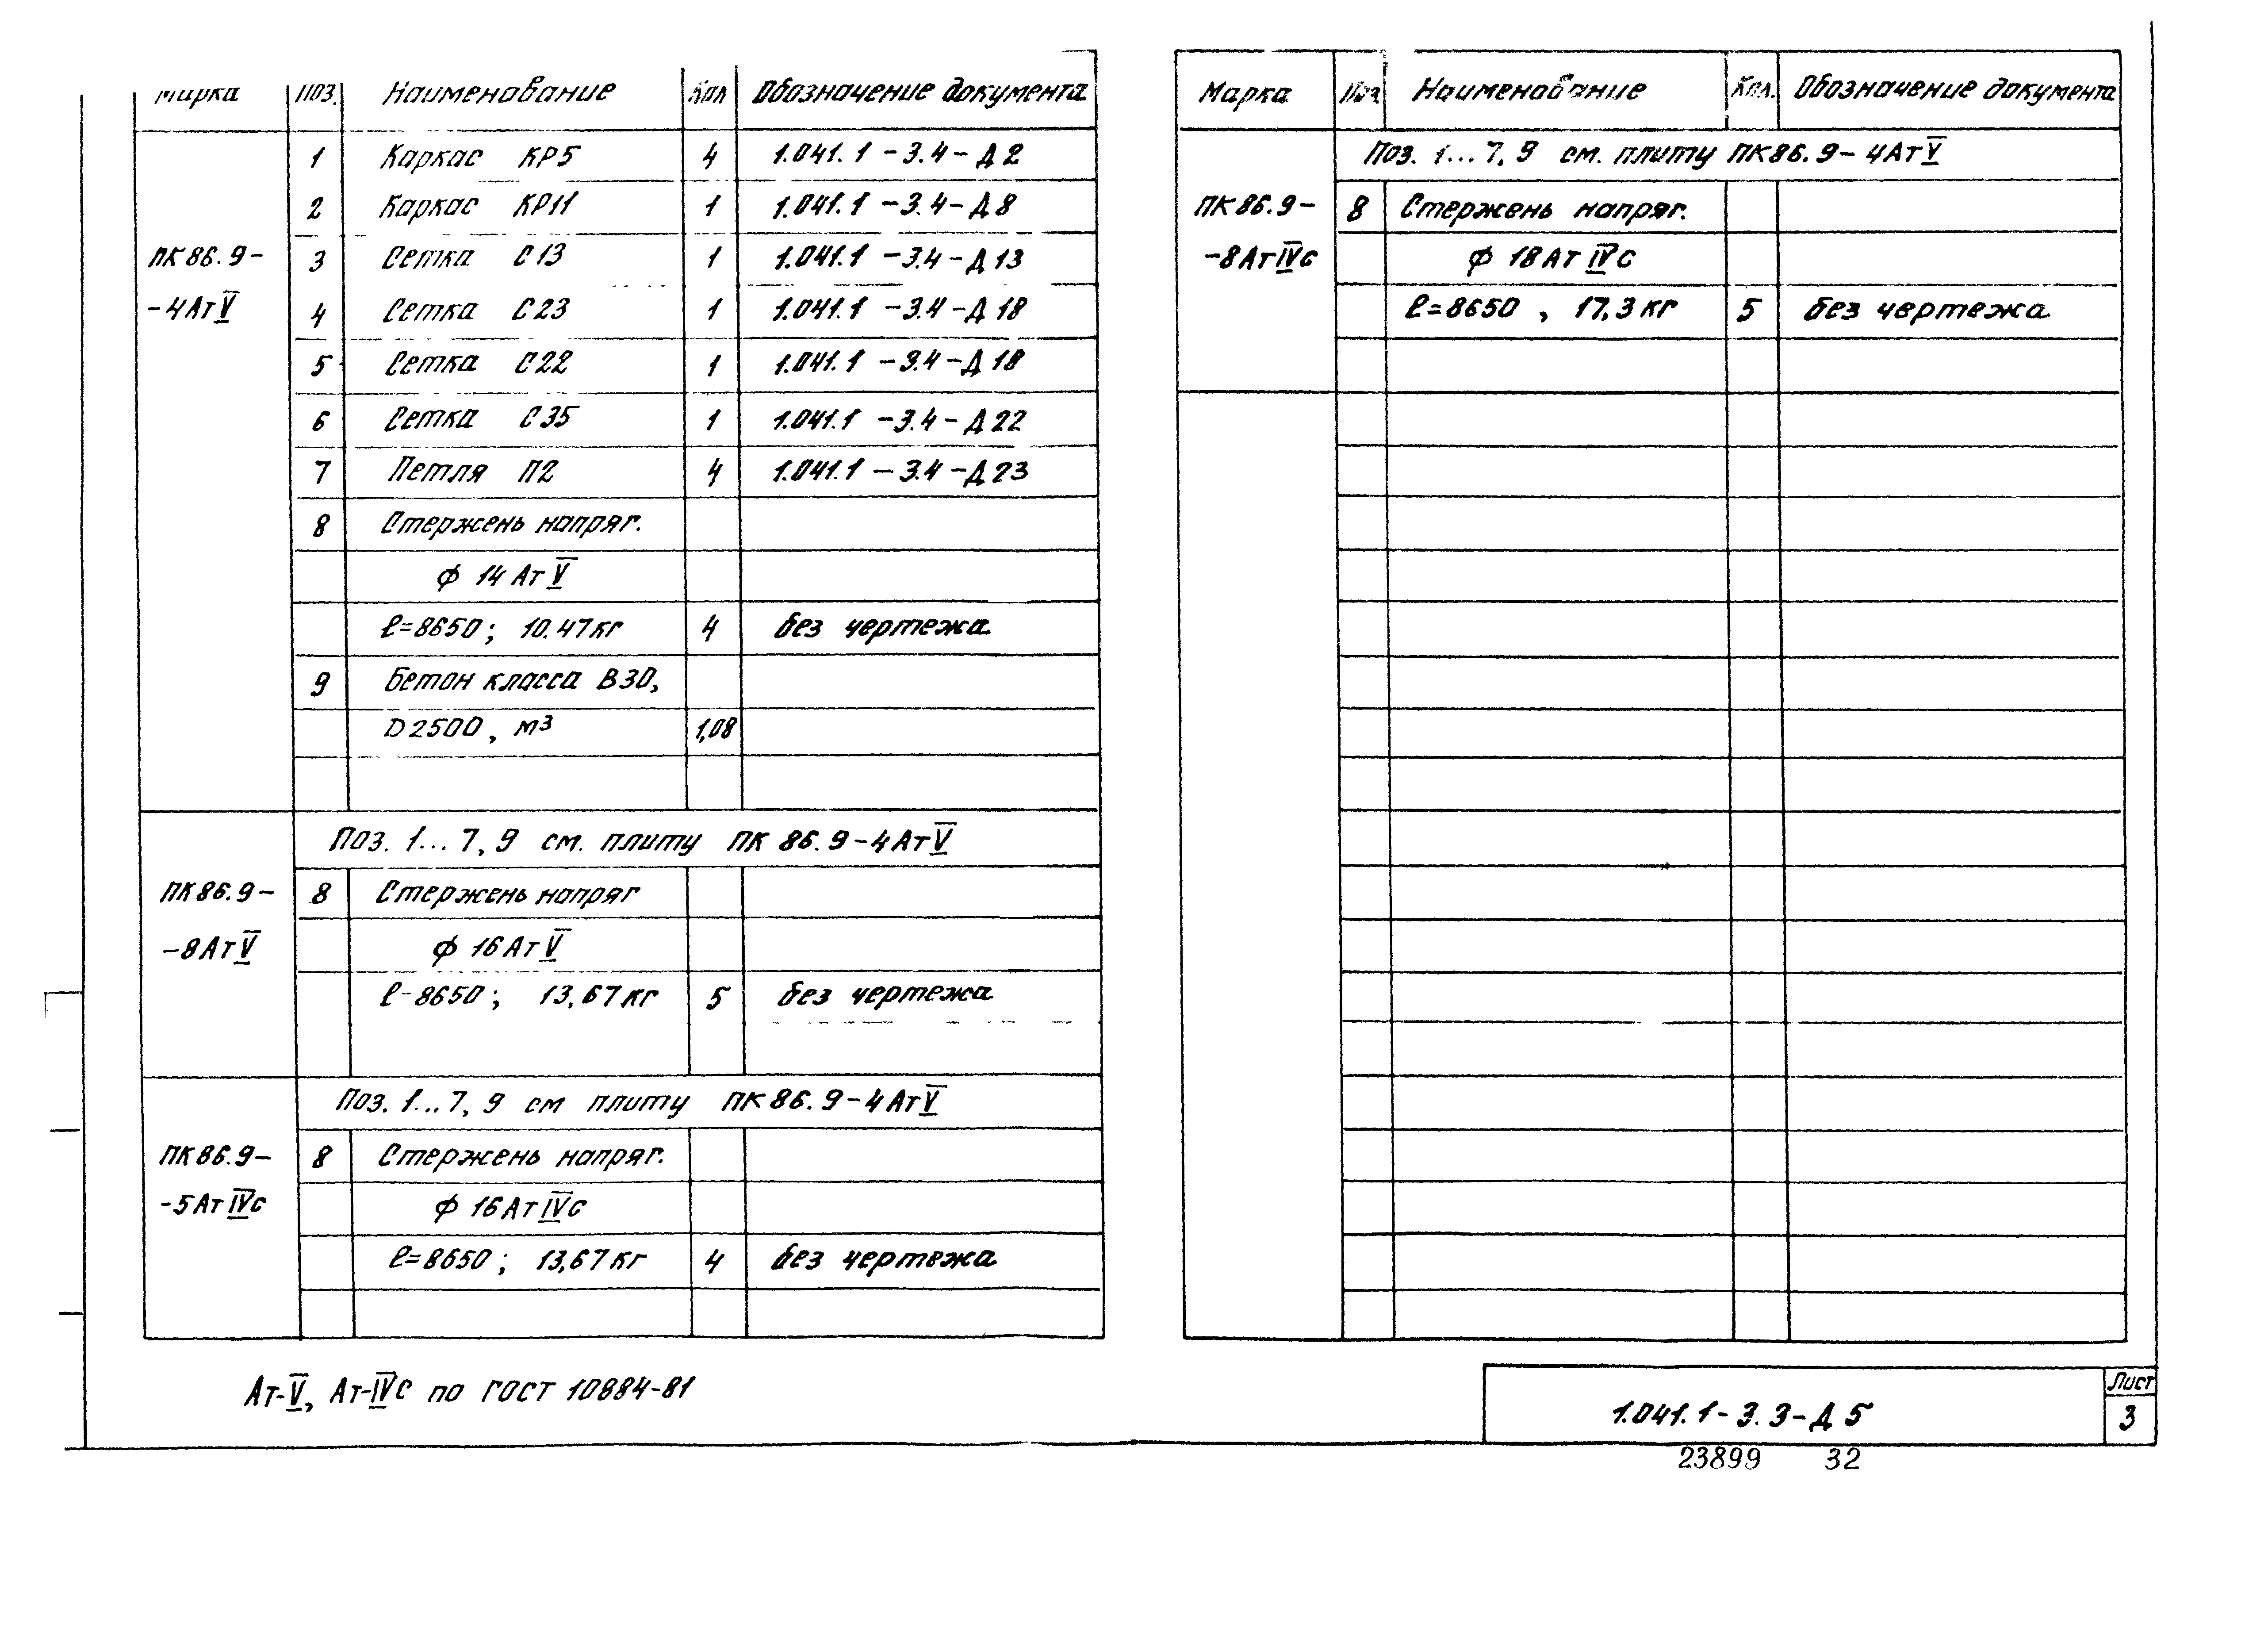 Марка Поз. Наименование Кол Обозначение документа
1 Каркас КР5 4 1.041.1-3.4-Д2
2 Каркас КР11 1 1.041.1-3.4-Д8
ПК86.9- 3 Сетка С13 1 1.041.1-3.4-Д13
-4АтV 4 Сетка С23 1 1.041.1-3.4-Д18
5 Сетка С22 1 1.041.1-3.4-Д18
6 Сетка С35 1 1.041.1-3.4-Д22
7 Петля П2 4 1.041.1-3.4-Д23
8 Стержень напряг.
ϕ 14АтV
ℓ=8650; 10.47кг 4 без чертежа
9 Бетон класса В30,
D2500, м³ 1,08
Поз. 1...7, 9 см. плиту ПК 86.9-4АтV
ПК86.9- 8 Стержень напряг
-8АтV ϕ 16АтV
ℓ-8650; 13,67кг 5 без чертежа
Поз. 1...7, 9 см плиту ПК86.9-4АтV
ПК86.9- 8 Стержень напряг.
-5АтIVс ϕ 16АтIVс
ℓ=8650; 13,67кг 4 без чертежа
Ат-V, Ат-IVС по ГОСТ 10884-81
Марка Поз Наименование Кол. Обозначение документа
Поз. 1...7, 9 см. плиту ПК86.9-4АтV
ПК86.9- 8 Стержень напряг.
-8АтIVс ϕ 18АтIVс
ℓ=8650, 17,3кг 5 без чертежа
1.041.1-3.3-Д5
Лист
3
23899 32